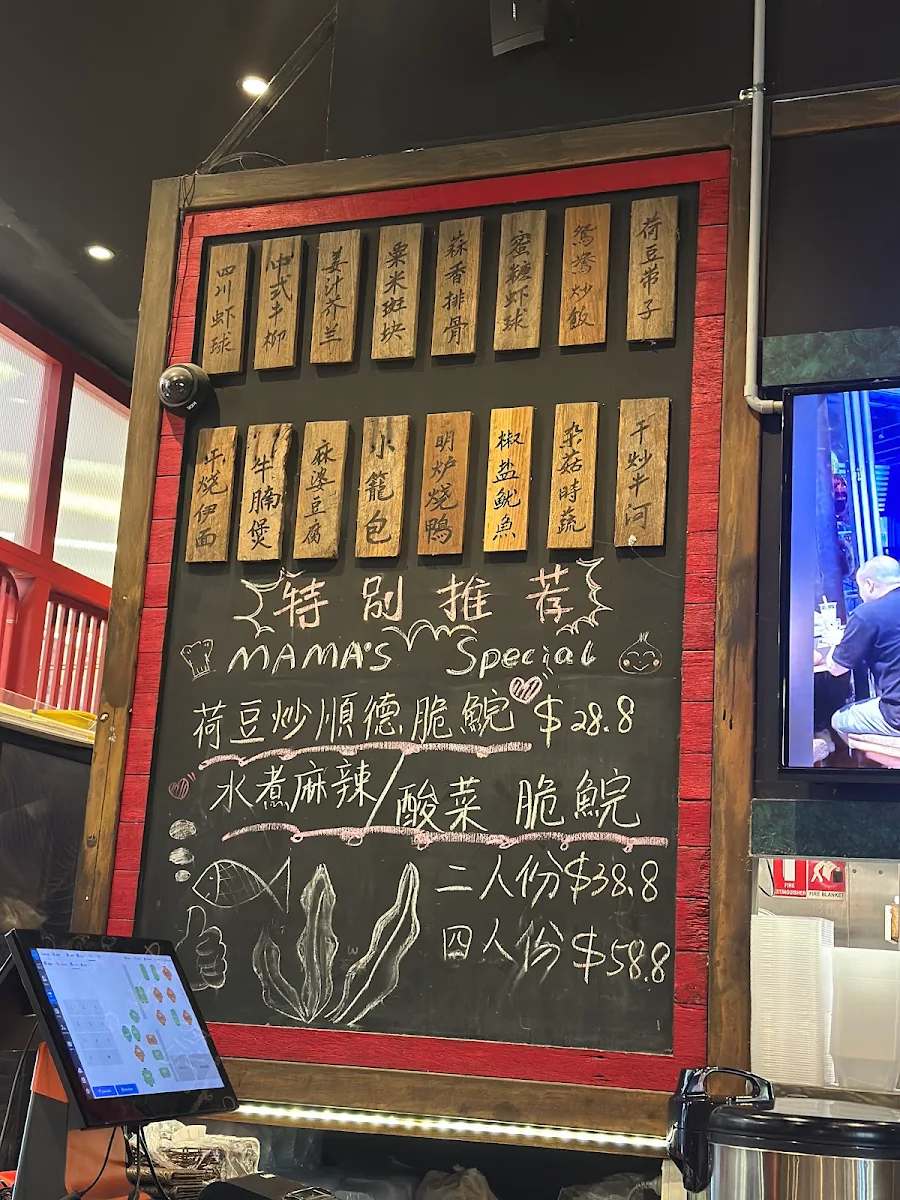 四川虾球
中式牛柳
姜汁芥兰
粟米斑块
蒜香排骨
蜜糖虾球
鸳鸯炒飯
荷豆带子
干燒伊面
牛腩煲
麻婆豆腐
小籠包
明炉烧鴨
椒盐魷魚
杂菇時蔬
干炒牛河
特别推荐
MAMA'S Special
荷豆炒順德脆鯇 $28.8
水煮麻辣/酸菜 脆鯇
二人份$38.8
四人份$58.8
FIRE EXTINGUISHER
FIRE BLANKET